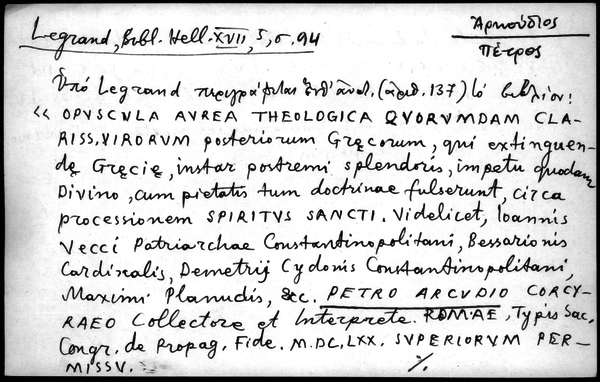 Legrand, Bibl. Hell. XVII, 5, σ. 94
Ἀρκούδιος
Πέτρος
Ὑπό Legrand περιγράφεται ἐνθ' ἀνωτ. (ἀριθ. 137) τό βιβλίον:
“ OPVSCVLA AVREA THEOLOGICA QVORVMDAM CLA-
RISS. VIRORVM posteriorum Gręcorum, qui extinguen-
dę Gręcię, instar postremi splendoris, impetu quodam
Divino, cum pietatis tum doctrinae fulserunt, circa
processionem SPIRITVS SANCTI. Videlicet, Ioannis
Vecci Patriarchae Constantinopolitani, Bessarionis
Cardinalis, Demetrij Cydonis Constantinopolitani,
Maximi Planudis, &c. PETRO ARCVDIO CORCY-
RAEO Collectore et Interprete. ROMAE, Typis Sac.
Congr. de Propag. Fide. M.DC.LXX. SVPERIORVM PER-
MISSV. ٪